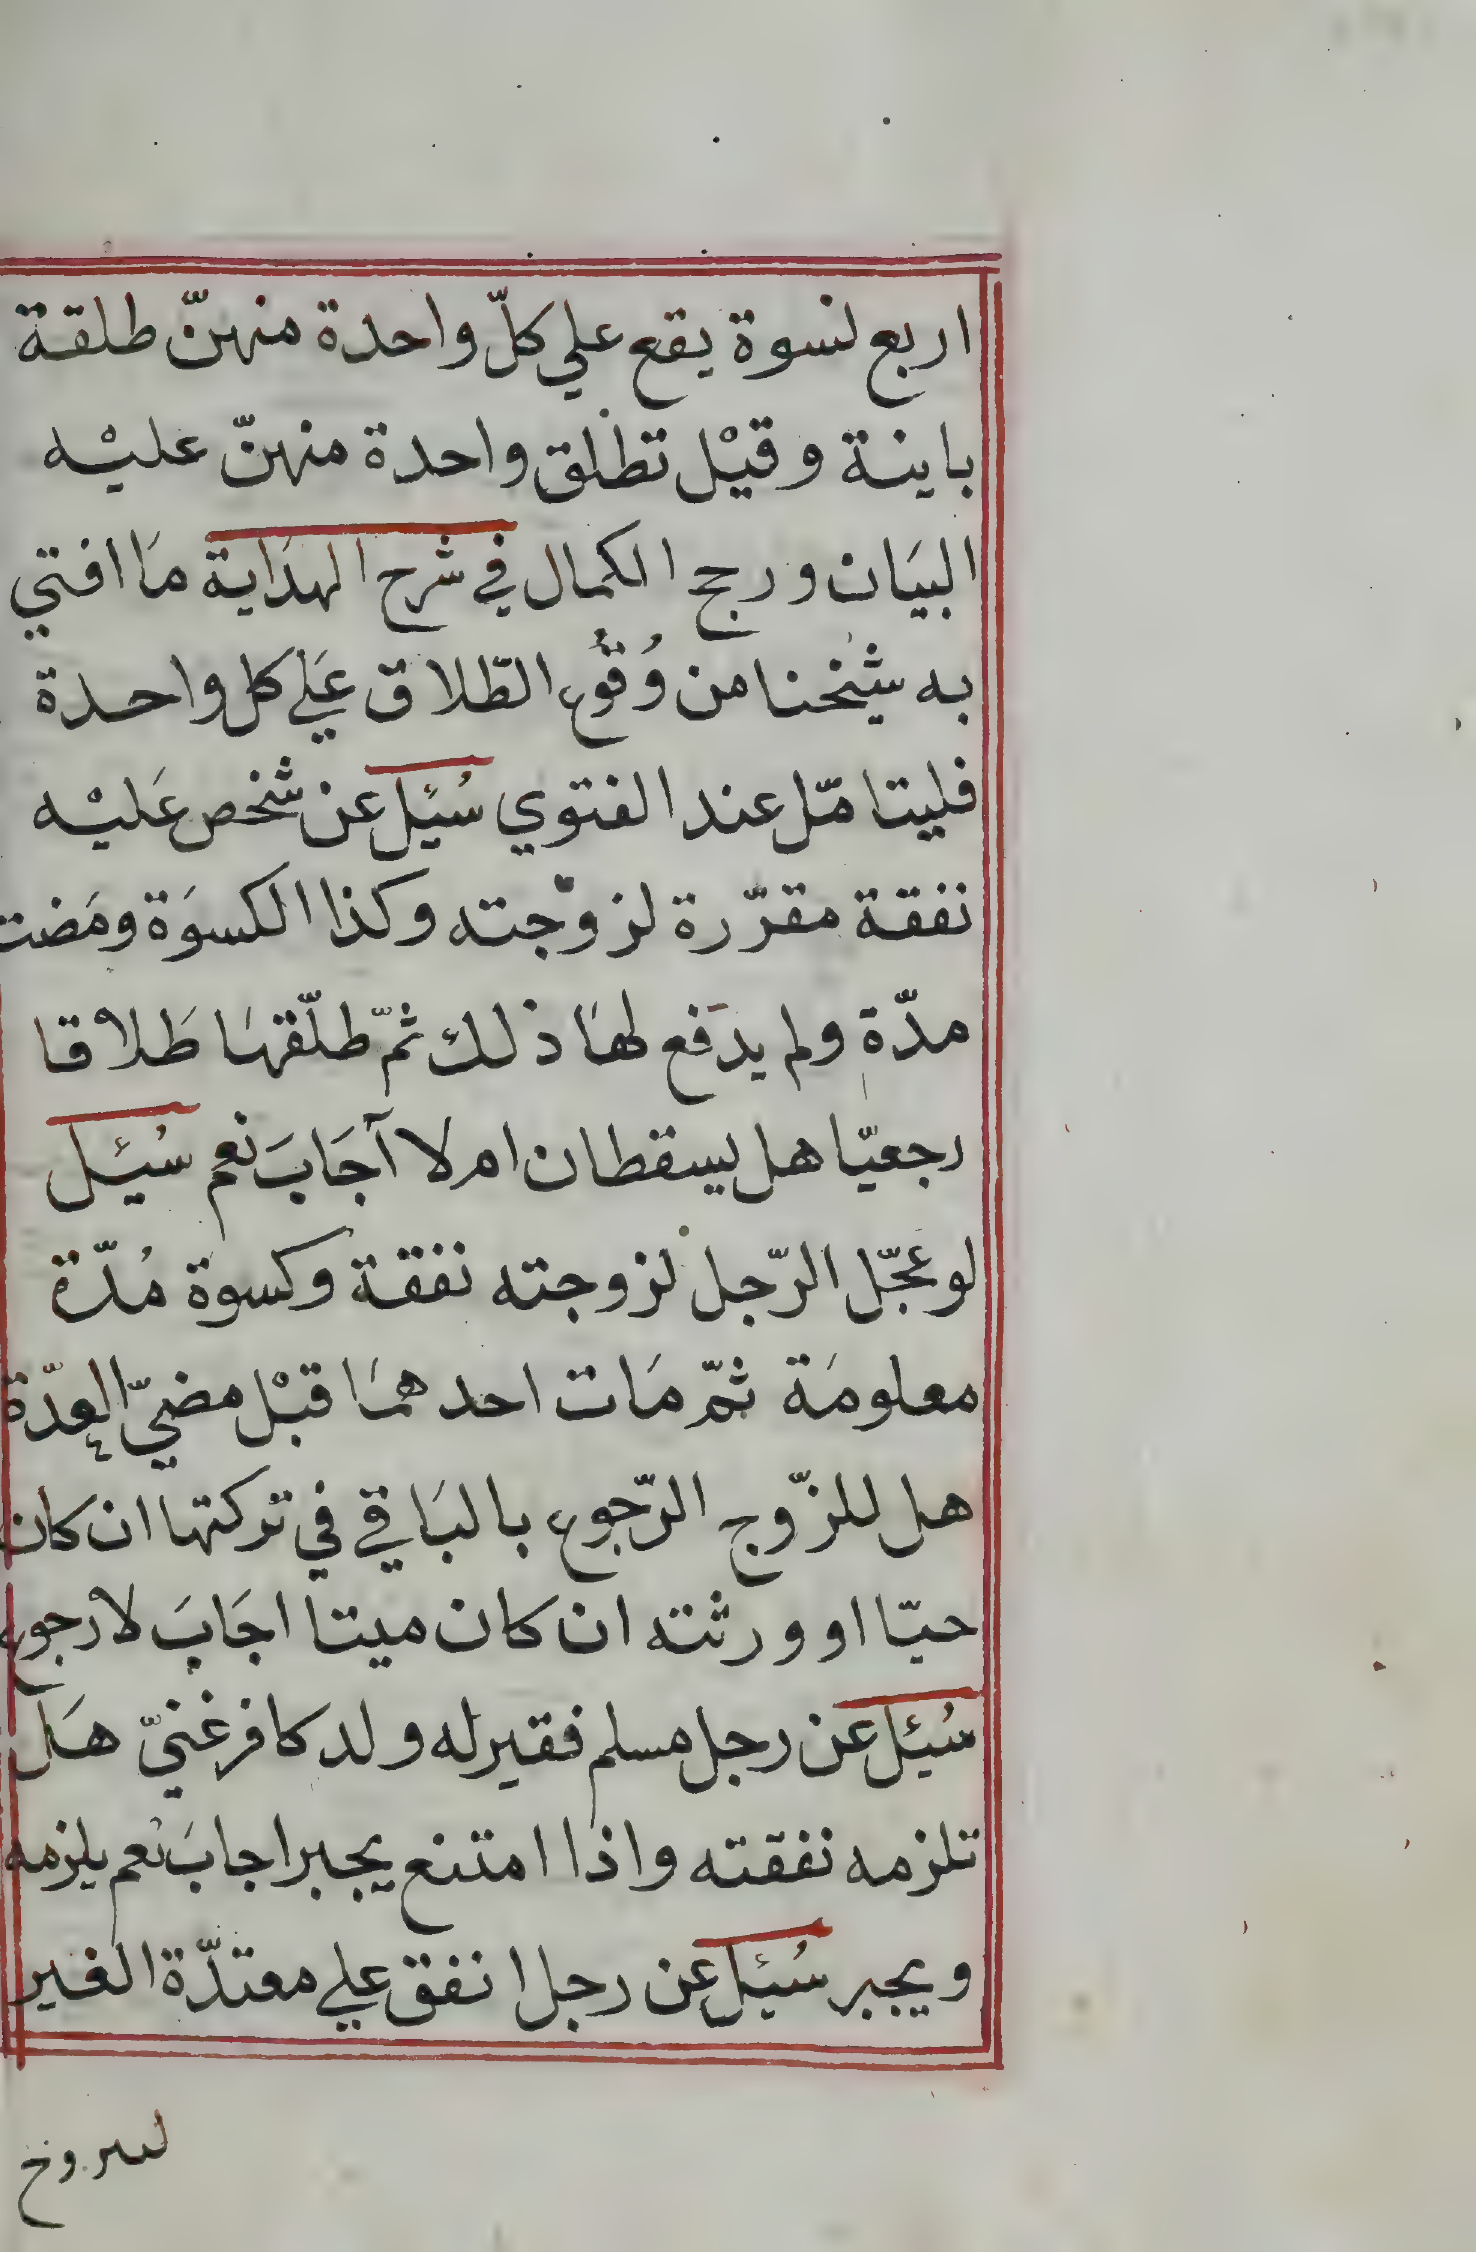 اربع لنسوة يقع علي كلّ واحدة منهنّ طلقة
باينة وقيْل تطلق واحدة منهنّ عليْه
البيَان ورجح الكمال في شرح الهدَاية مَا افتي
به شيْخنا من وُقوُع الطّلاق عَلي كل واحدة
فليتامّل عند الفتوي سُئيل عن شخص عَليْه
نفقة مقرّرة لزوْجته وكذا الكسوَة ومَضت
مدّة ولم يدَفع لهَا ذلك ثمّ طلّقهَا طَلاقا
رجعيّا هل يسقطان ام لا آجَابَ نعم سُئيل
لو عجّل الرّجل لزوجته نفقة وكسوة مُدّة
معلومَة ثمّ مَات احدهمَا قبْل مضيّ العدّة
هل للزّوج الرّجوع بالبَاقي في تركتها ان كان
حيّا او ورثته ان كان ميتا اجَابَ لا رجوع
سُئيل عن رجل مسلم فقير له ولد كافر غنيّ هَل
تلزمه نفقته واذا امتنع يجبر اجابَ نعم يلزمه
ويجبر سُئيل عن رجل انفق علي معتدّة الغير